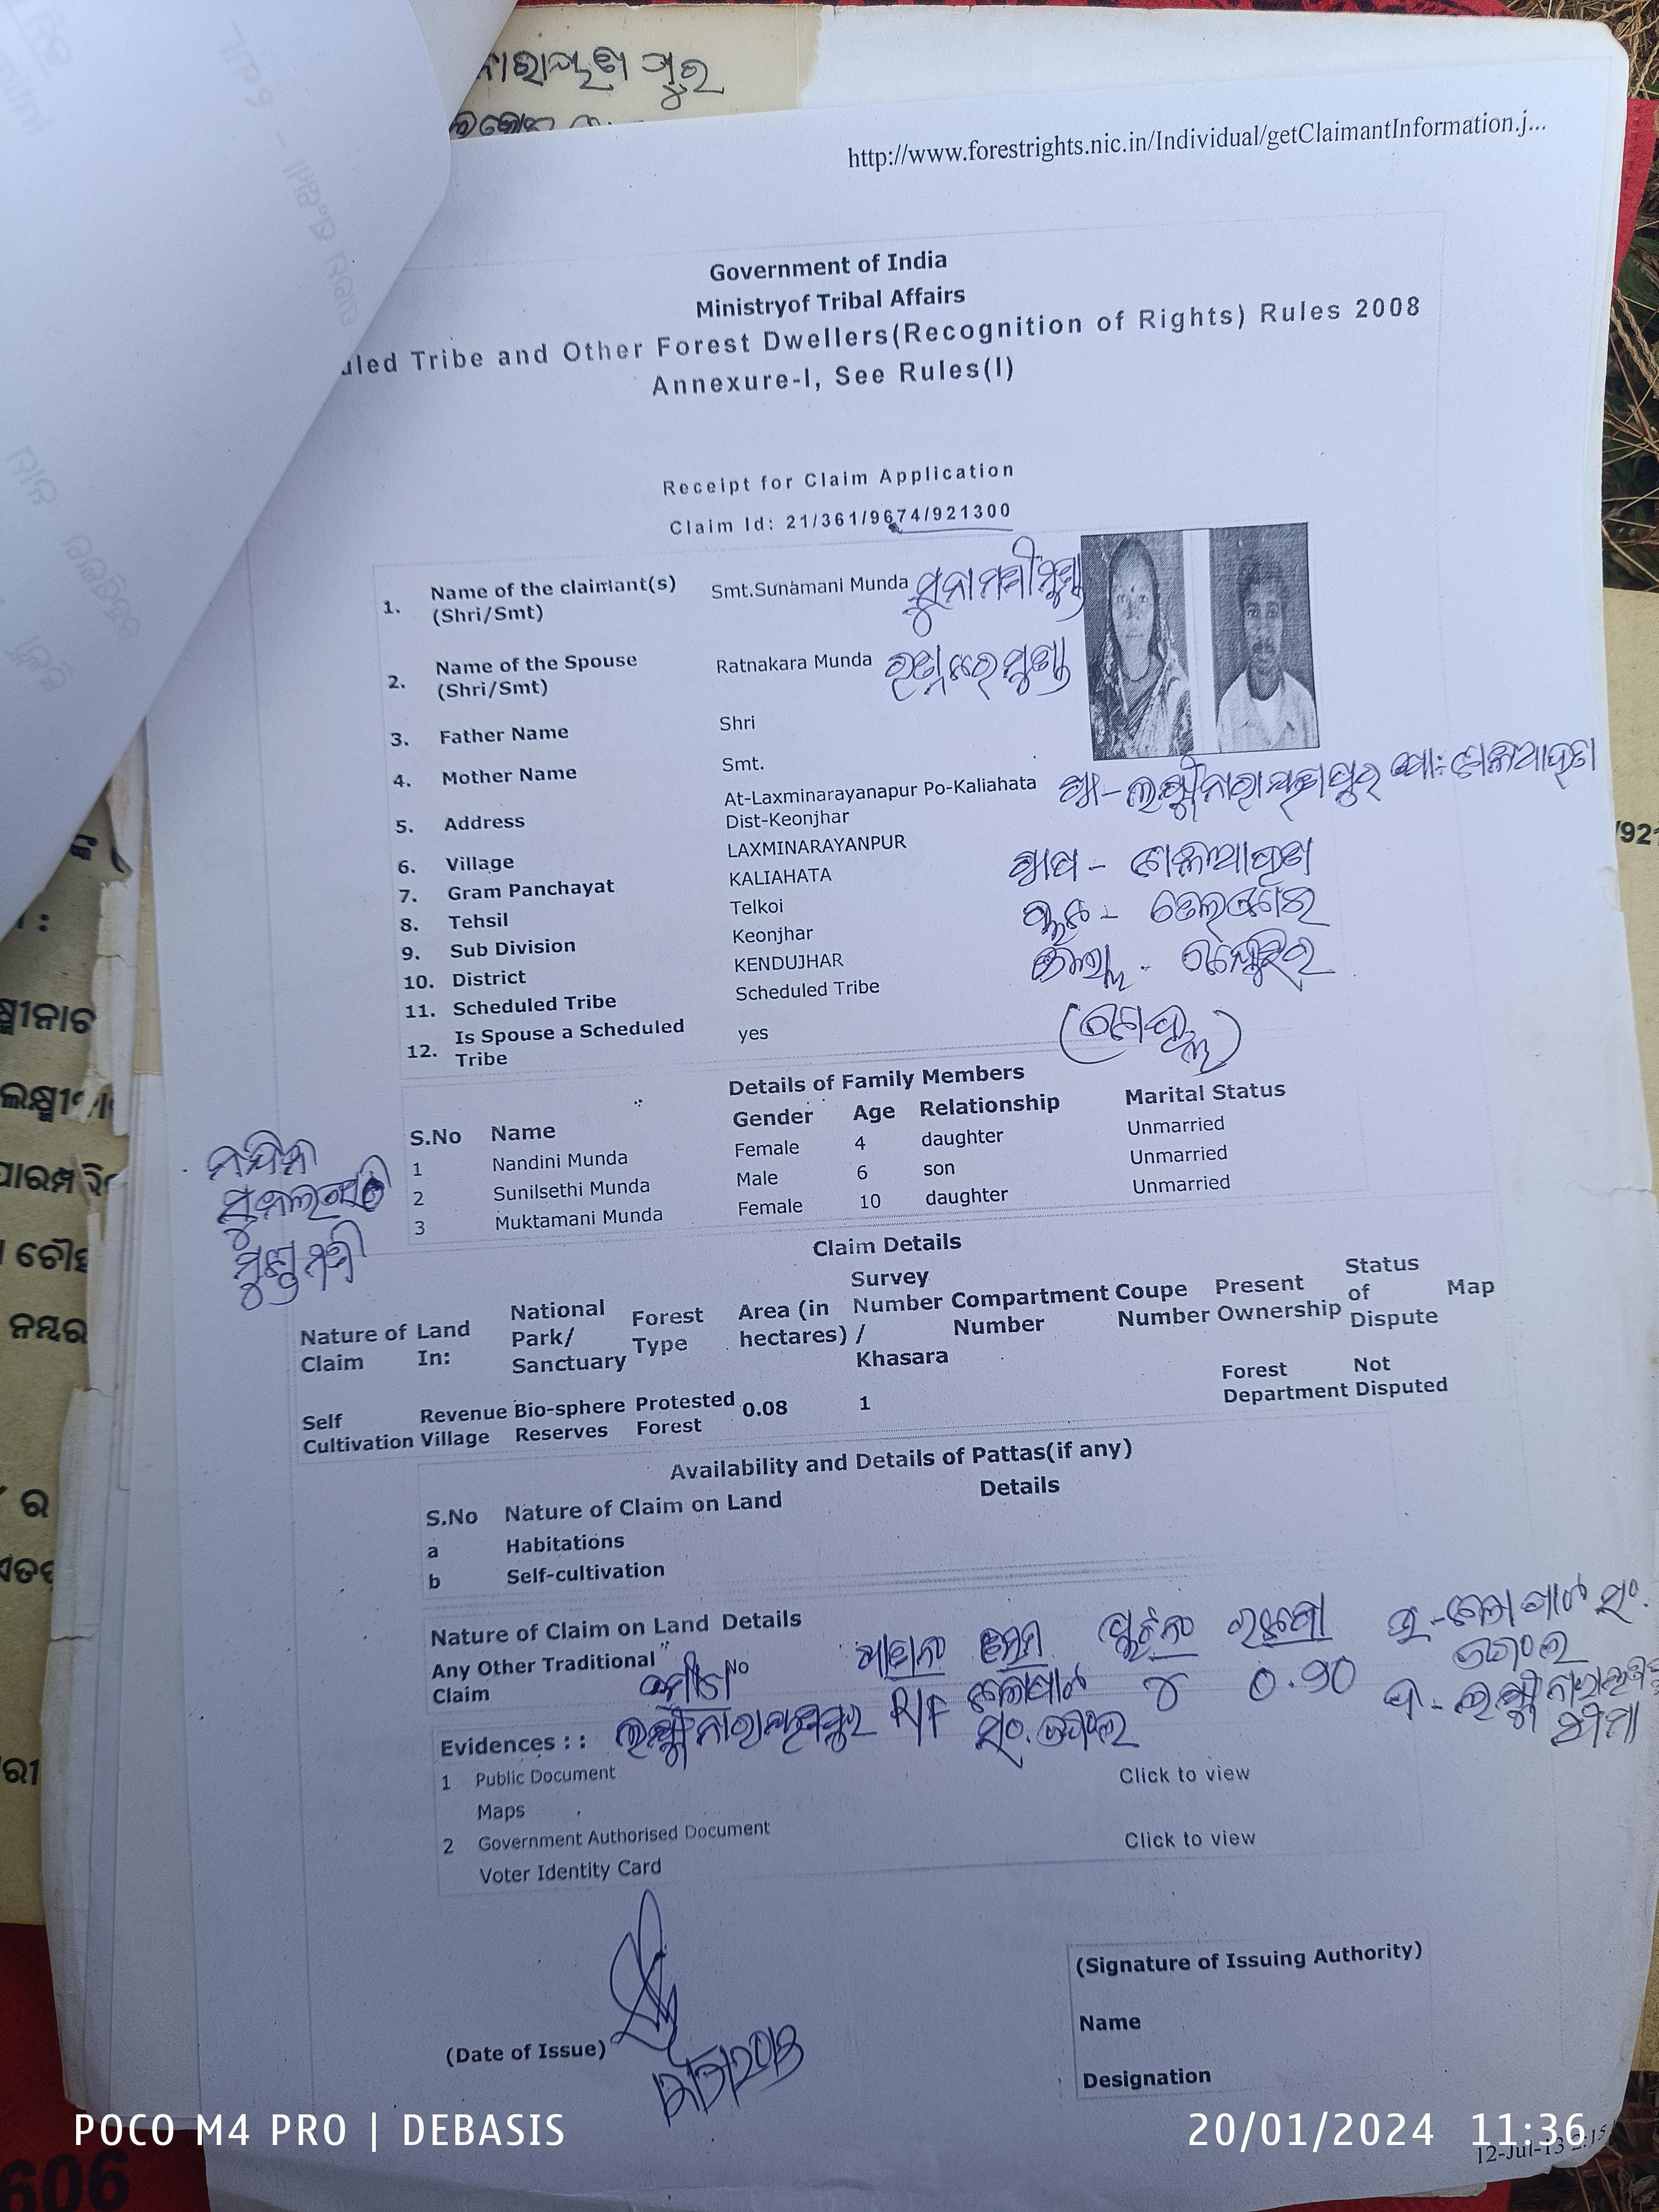 ନାରାୟଣ ପୁର
http://www.forestrights.nic.in/Individual/getClaimantInformation.j...
Government of India
Ministryof Tribal Affairs
uled Tribe and Other Forest Dwellers(Recognition of Rights) Rules 2008
Annexure-I, See Rules(I)
Receipt for Claim Application
Claim Id: 21/361/9674/921300
1. Name of the claimant(s) (Shri/Smt) Smt.Sunamani Munda ସୁନାମଣୀ ମୁଣ୍ଡା
2. Name of the Spouse (Shri/Smt) Ratnakara Munda ମୁଣ୍ଡା
3. Father Name Shri
4. Mother Name Smt.
5. Address At-Laxminarayanapur Po-Kaliahata Dist-Keonjhar ଗ୍ରା-ଲକ୍ଷ୍ମୀନାରାୟଣପୁର ପୋ: କାଳିଆହତା
6. Village LAXMINARAYANPUR
7. Gram Panchayat KALIAHATA ଗ୍ରାପ - କାଳିଆହତା
8. Tehsil Telkoi ବ୍ଲକ - ତେଲକୋଇ
9. Sub Division Keonjhar
10. District KENDUJHAR ଜିଲ୍ଲା - କେନ୍ଦୁଝର
11. Scheduled Tribe Scheduled Tribe
12. Is Spouse a Scheduled Tribe yes
Details of Family Members
S.No Name Gender Age Relationship Marital Status
1 Nandini Munda Female 4 daughter Unmarried
2 Sunilsethi Munda Male 6 son Unmarried
3 Muktamani Munda Female 10 daughter Unmarried
ନନ୍ଦିନୀ
ମୁକ୍ତାମଣୀ
Claim Details
Nature of Claim Land In: National Park/ Sanctuary Forest Type Area (in hectares) Survey Number / Khasara Compartment Number Coupe Number Present Ownership Status of Dispute Map
Self Cultivation Revenue Village Bio-sphere Reserves Protested Forest 0.08 1 Forest Department Not Disputed
Availability and Details of Pattas(if any)
S.No Nature of Claim on Land Details
a Habitations
b Self-cultivation
Nature of Claim on Land Details
Any Other Traditional Claim No
ପ୍ଲଟ ନଂ ରକବା
ଲକ୍ଷ୍ମୀନାରାୟଣପୁର R/F ୪ ୦.୨୦
ଜଙ୍ଗଲ
Evidences : :
1 Public Document Click to view
Maps
2 Government Authorised Document Click to view
Voter Identity Card
(Date of Issue)
(Signature of Issuing Authority)
Name
Designation
POCO M4 PRO | DEBASIS
20/01/2024 11:36
12-Jul-13 2:15
606